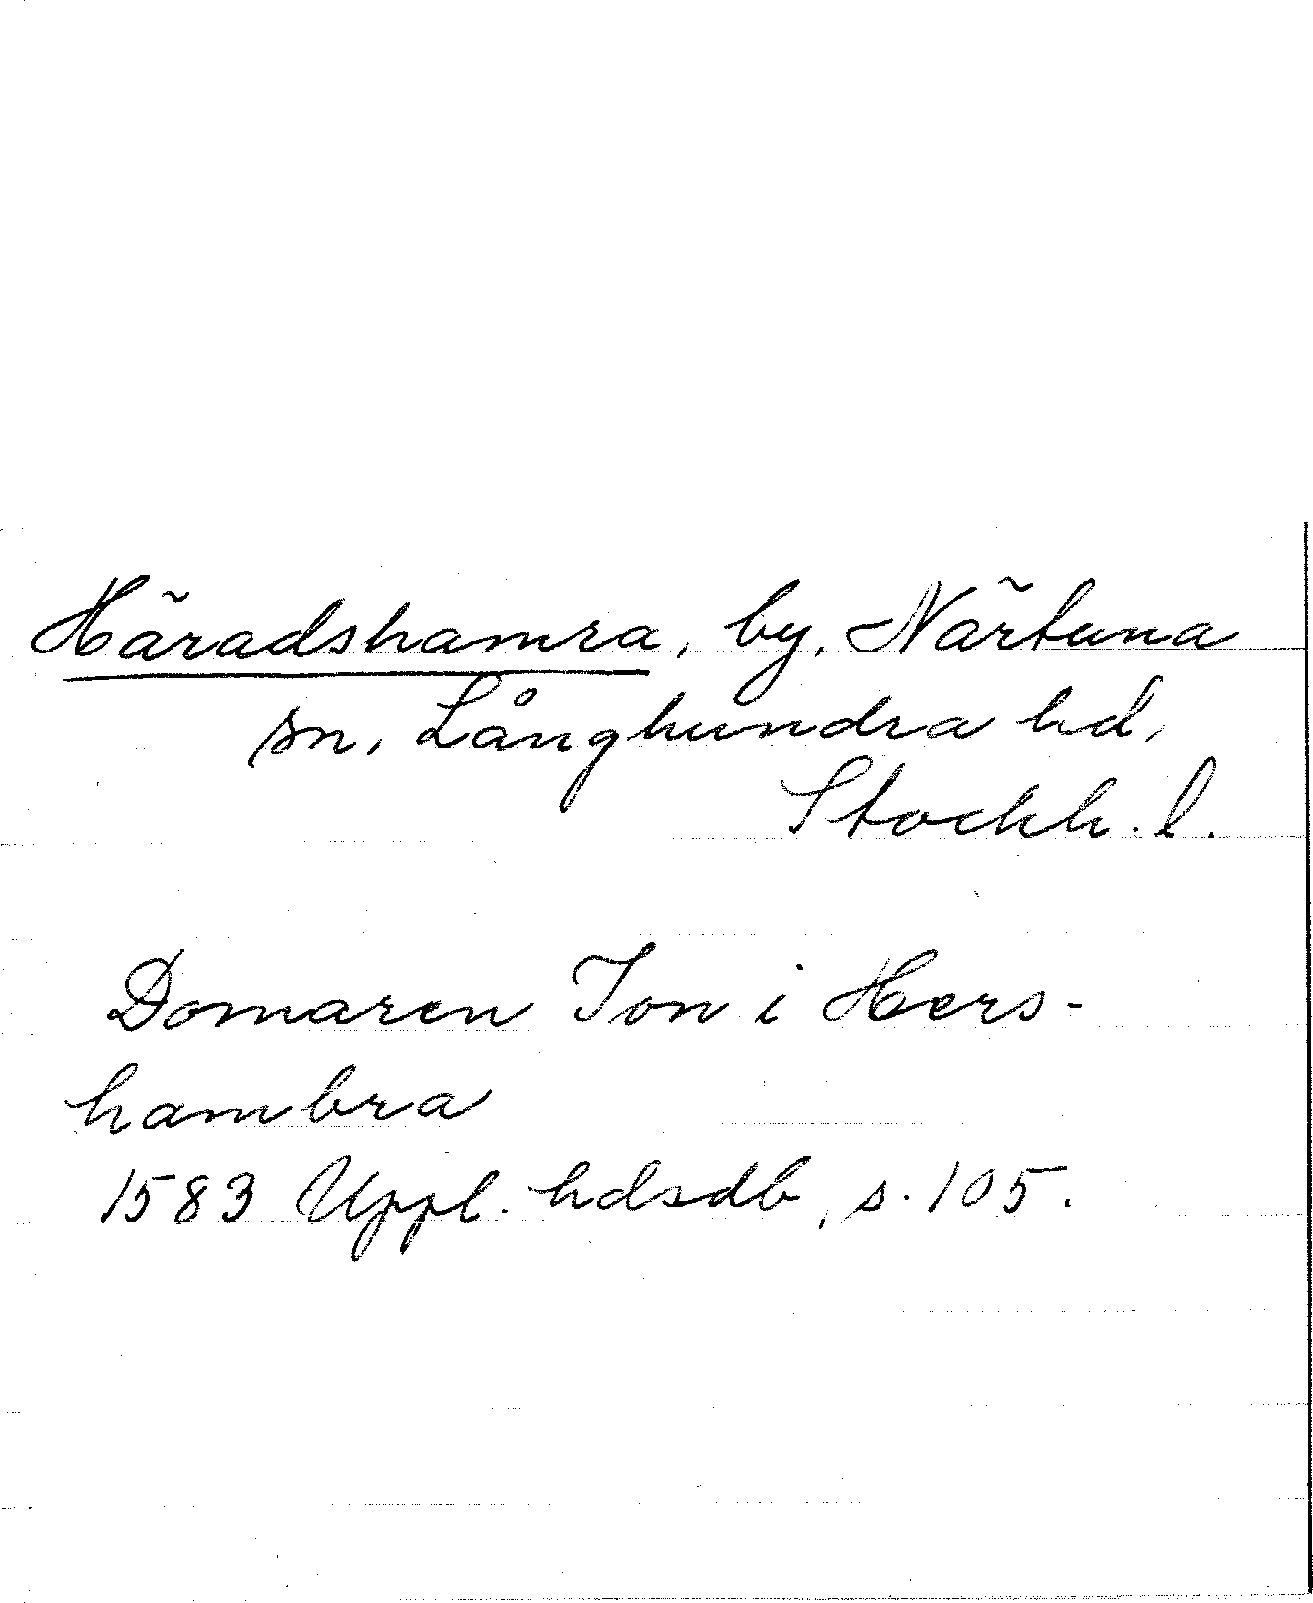 Häradshamra, by, Närtuna
sn, Långhundra hd,
Stockh. l.
Domaren Ion i Hers-
hambra
1583 Uppl. hdsdb, s. 105.